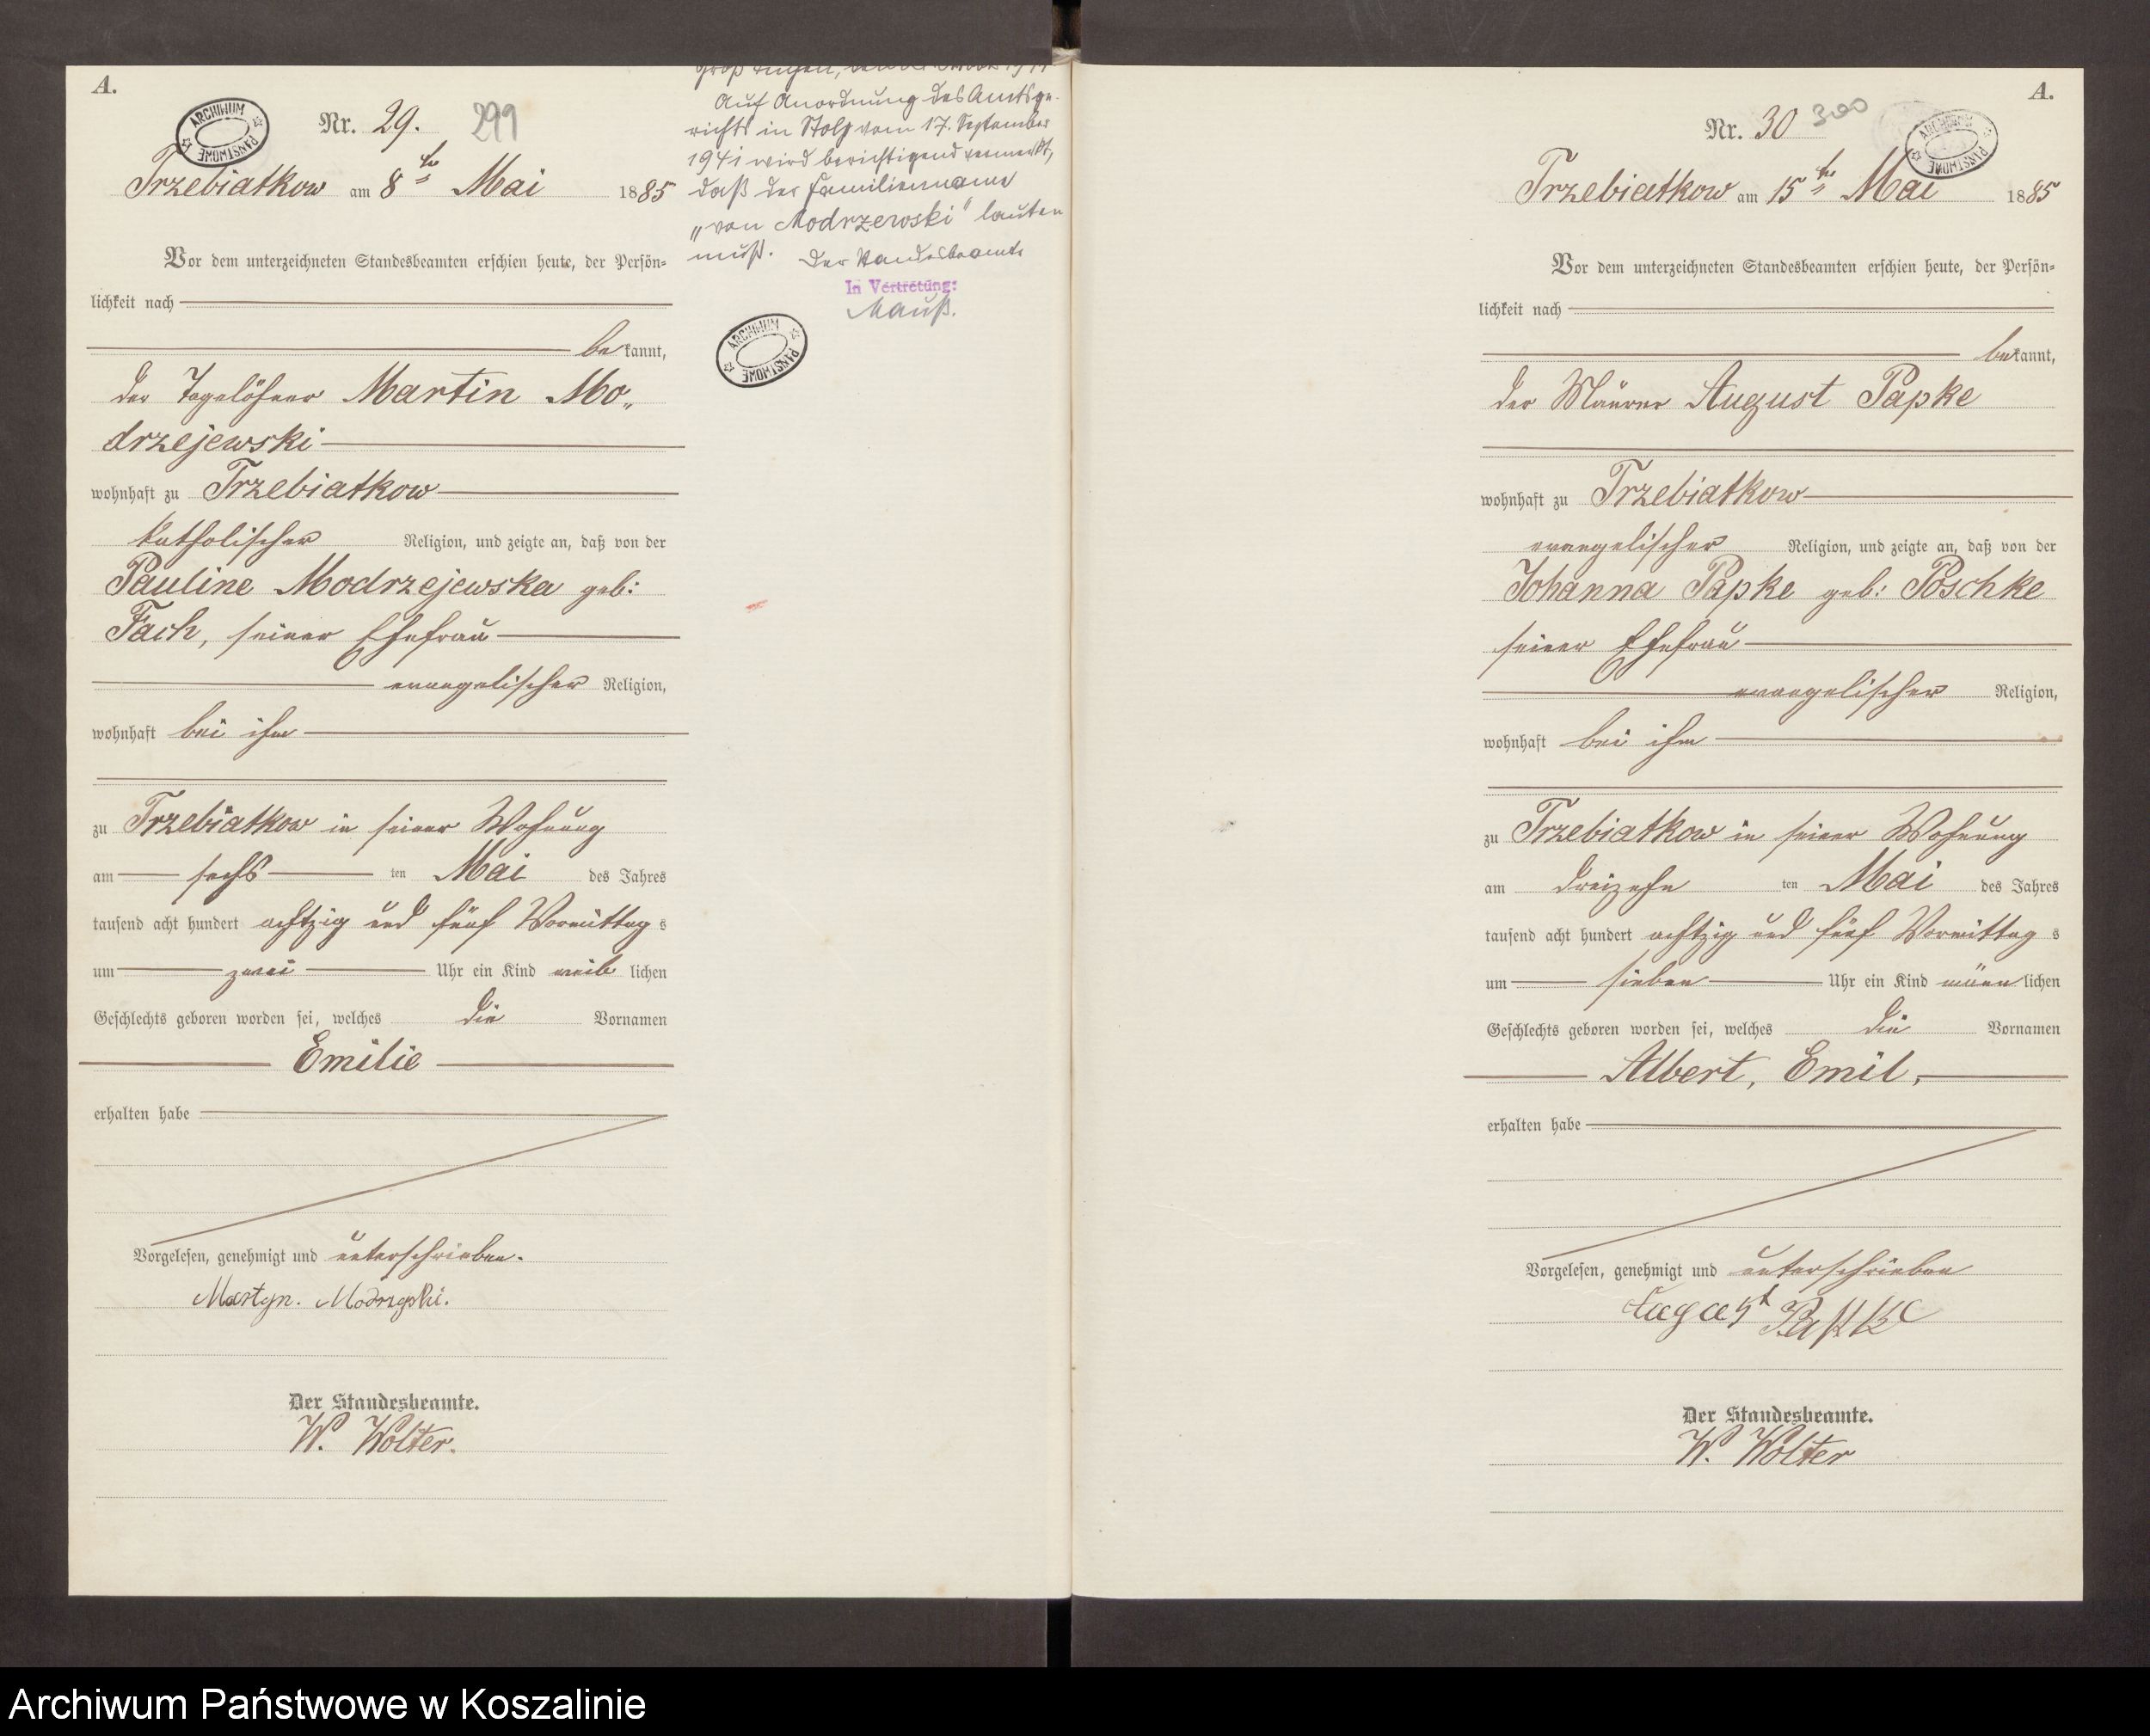 A.
Nr. 29. 299
ARCHIWUM PAŃSTWOWE
Trzebiatkow am 8ten Mai 1885
Vor dem unterzeichneten Standesbeamten erschien heute, der Persön=
lichkeit nach
bekannt,
der Tagelöhner Martin Mo„
drzejewski
wohnhaft zu Trzebiatkow
katholischer Religion, und zeigte an, daß von der
Pauline Modrzejewska geb:
Fach, seiner Ehefrau
evangelischer Religion,
wohnhaft bei ihm
zu Trzebiatkow in seiner Wohnung
am sechs ten Mai des Jahres
tausend acht hundert achtzig und fünf Vormittag s
um zwei Uhr ein Kind weib lichen
Geschlechts geboren worden sei, welches die Vornamen
Emilie
erhalten habe
Vorgelesen, genehmigt und unterschrieben.
Martyn.
Der Standesbeamte.
W. Wolter.
Groß
Auf Anordnung des Amtsge-
richts in Stolp vom 17. September
1941 wird berichtigend vermerkt,
daß der Familienname
„von Modrzewski" lauten
muß. Der Standesbeamte
In Vertretung:
Mauß.
ARCHIWUM PAŃSTWOWE
A.
Nr. 30 300
ARCHIWUM PAŃSTWOWE
Trzebiatkow am 15ten Mai 1885
Vor dem unterzeichneten Standesbeamten erschien heute, der Persön=
lichkeit nach
bekannt,
der Maurer August Papke
wohnhaft zu Trzebiatkow
evangelischer Religion, und zeigte an, daß von der
Johanna Papke geb: Poschke
seiner Ehefrau
evangelischer Religion,
wohnhaft bei ihm
zu Trzebiatkow in seiner Wohnung
am dreizehn ten Mai des Jahres
tausend acht hundert achtzig und fünf Vormittag s
um sieben Uhr ein Kind männ lichen
Geschlechts geboren worden sei, welches die Vornamen
Albert, Emil,
erhalten habe
Vorgelesen, genehmigt und unterschrieben
August Papke
Der Standesbeamte.
W. Wolter
Archiwum Państwowe w Koszalinie